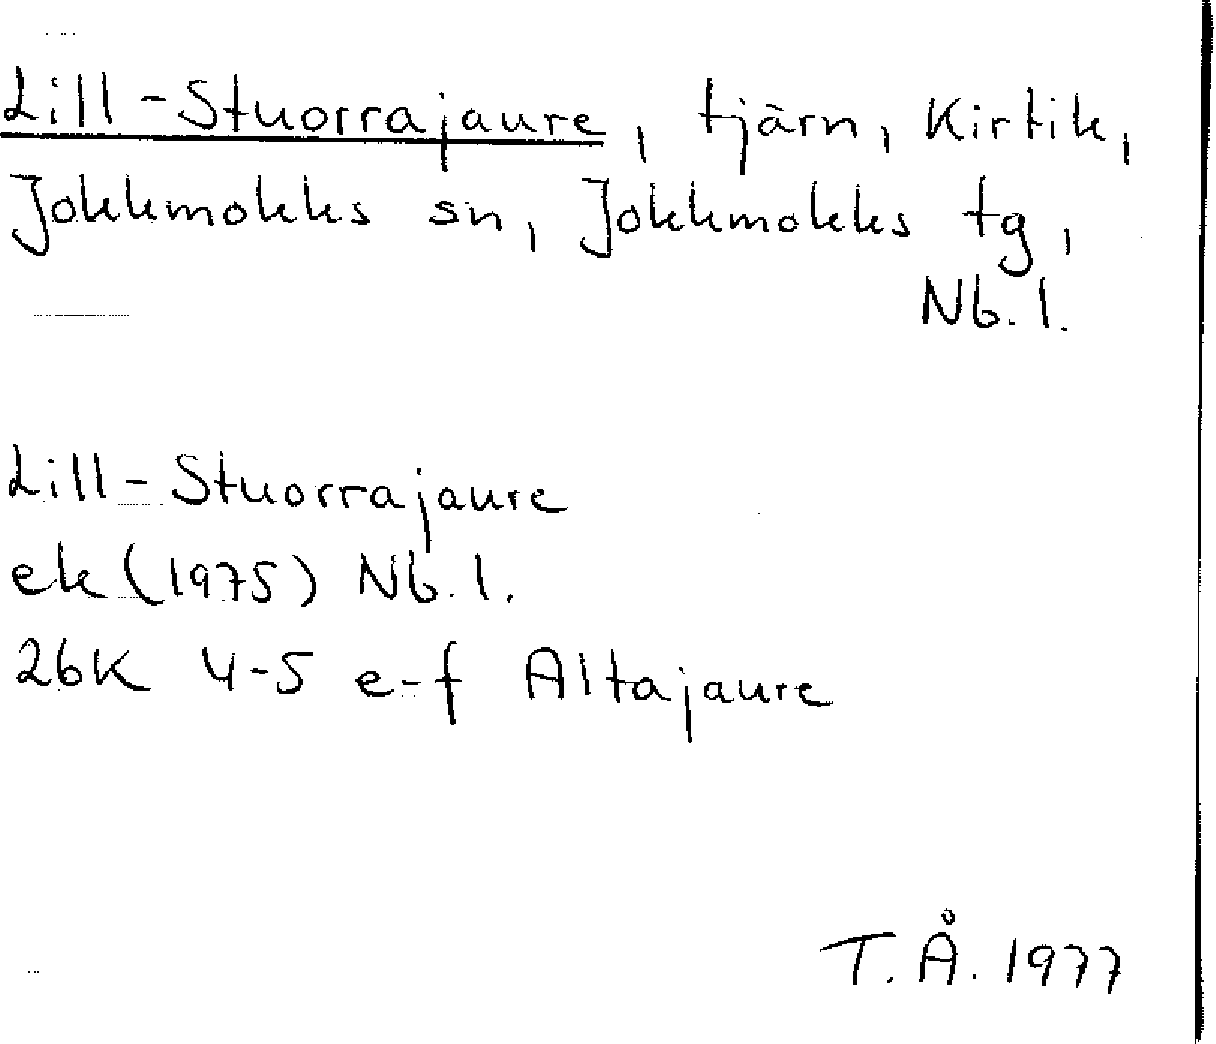 Lill-Stuorrajaure, tjärn, Kirtik,
Jokkmokks sn, Jokkmokks tg,
Nb. l.
Lill-Stuorrajaure
ek (1975) Nb. l.
26K 4-5 e-f Altajaure
T. Å. 1977